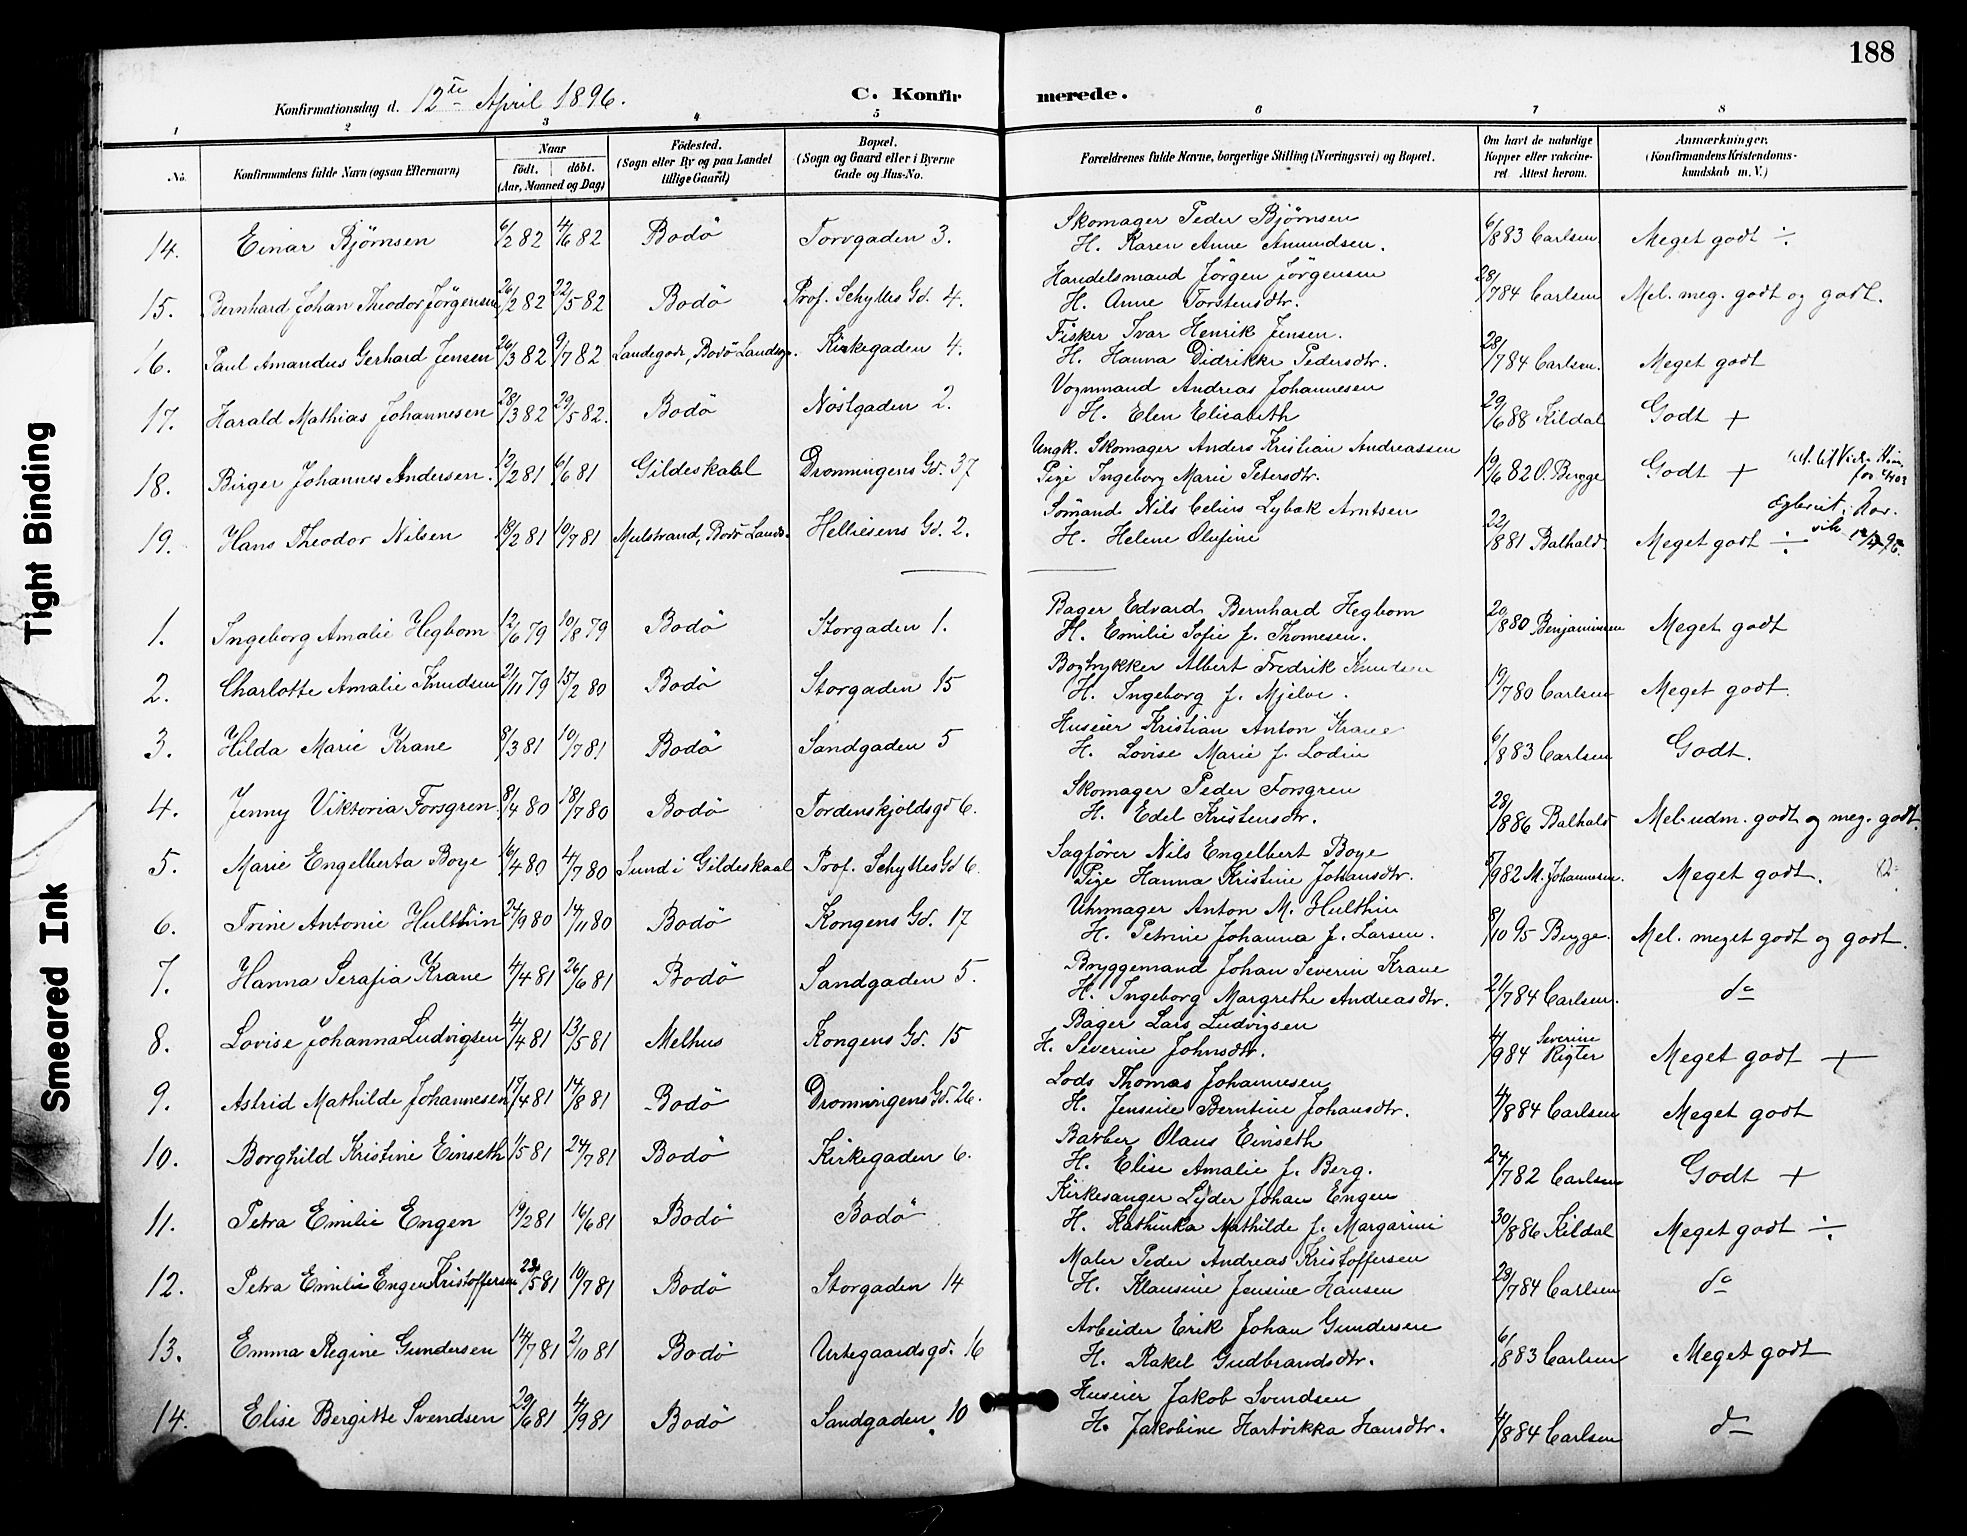 188
Konfirmationsdag d. 12te April 1896. C. Konfirmerede.
1 2 3 4 5 6 7 8
No. Konfirmandens fulde Navn (ogsaa Efternavn) Naar født. døbt. (Aar, Maaned og Dag) Fødested. (Sogn eller By og paa Landet tillige Gaard) Bopæl. (Sogn og Gaard eller i Byerne Gade og Hus-No. Forældrenes fulde Navne, borgerlige Stilling (Næringsvei) og Bopæl. Om havt de naturlige Kopper eller vakcineret. Attest herom. Anmærkninger. (Konfirmandens Kristendomskundskab m. V.)
14. Einar Bjørnsen 6/2 82 4/6 82 Bodö Torvgaden 3. Skomager Peder Bjørnsen H. Karen Anne Amundsen. 6/8 83 Carlsen. Meget godt ÷
15. Bernhard Johan Theodor Jörgensen 26/2 82 22/5 82 Bodö Prof. Schyttes Gd. 4. Handelsmand Jörgen Jörgensen H. Anne Torstensdtr. 28/7 84 Carlsen Mel. meg. godt og godt.
16. Paul Amandus Gerhard Jensen 26/3 82 9/7 82 Landegode, Bodö Landsogn. Kirkegaden 4. Fisker Ivar Henrik Jensen. H. Hanna Didrikke Pedersdtr. 28/7 84 Carlsen. Meget godt
17. Harald Mathias Johannesen 28/3 82 29/5 82. Bodö Nöstgaden 2. Vognmand Andreas Johannesen H. Elen Elisabeth 29/6 88 Kildal Godt +
18. Birger Johannes Andersen 12/2 81 6/6 81 Gildeskaal Dronningens Gd. 37 Ungk. Skomager Anders Kristian Andreassen Pige Ingeborg Marie Petersdtr. 19/6 82 O. Bugge Godt +
19. Hans Theodor Nilsen 18/2 81 10/7 81 Mulstrand, Bodö Lands. Helliesens Gd. 2. Sömand Nils Celius Lybæk Arntsen H. Helene Olufine 22/8 81 Balhald. Meget godt ÷
1. Ingeborg Amalie Hegbom 12/6 79 10/8 79 Bodö Storgaden 1. Bager Edvard Bernhard Hegbom H. Emilie Sofie f. Thomesen. 20/8 80 Benjaminsen Meget godt
2. Charlotte Amalie Knudsen 21/11 79 15/2 80 Bodö Storgaden 15 Bogtrykker Albert Fredrik Knudsen H. Ingeborg f. Mjelve. 19/7 80 Carlsen Meget godt.
3. Hilda Marie Krane 8/3 81 10/7 81 Bodö Sandgaden 5 Huseier Kristian Anton Krane H. Lovise Marie f. Lodin 6/8 83 Carlsen Godt.
4. Jenny Viktoria Forsgren 8/4 80 18/7 80 Bodö Tordenskjoldsgd 6. Skomager Peder Forsgren H. Edel Kristensdtr. 28/8 86 Balhald Mel. udm. godt og meg. godt.
5. Marie Engelberta Boye 16/4 80 4/7 80 Sund i Gildeskaal Prof. Schyttes Gd 6. Sagförer Nils Engelbert Boye Pige Hanna Kristine Johansdtr. 5/9 82 M. Johannesen. Meget godt.
6. Trine Antonie Hulthin 24/9 80 14/11 80 Bodö Kongens Gd. 17 Uhrmager Anton M. Hulthin H. Petrine Johanna f. Larsen. 8/10 95 Bugge. Mel. meget godt og godt.
7. Hanna Serafia Krane 4/4 81 26/6 81 Bodö Sandgaden 5. Bryggemand Johan Severin Krane H. Ingeborg Margrethe Andreasdtr. 21/7 84 Carlsen. do
8. Lovise Johanna Ludvigsen 4/4 81 13/5 81 Melhus Kongens Gd. 15 Bager Lars Ludvigsen H. Severine Johnsdtr. 4/9 84 Severine Rigter Meget godt +
9. Astrid Mathilde Johannesen 17/4 81 14/8 81 Bodö Dronningens Gd. 26. Lods Thomas Johannesen H. Jensine Berntine Johansdtr. 4/8 84 Carlsen Meget godt
10. Borghild Kristine Einseth 1/5 81 24/7 81 Bodö Kirkegaden 6. Barber Olaus Einseth H. Elise Amalie f. Berg. 24/7 82 Carlsen Godt +
11. Petra Emilie Engen 19/2 81 16/6 81 Bodö Bodö Kirkesanger Lyder Johan Engen H. Kathinka Mathilde f. Margarini 30/8 86 Kildal Meget godt ÷
12. Petra Emilie Engen Kristoffersen 23/5 81 10/7 81 Bodö Storgaden 14 Maler Peder Andreas Kristoffersen H. Klausine Jensine Hansen 28/7 84 Carlsen do
13. Emma Regine Gundersen 14/7 81 2/10 81 Bodö Urtegaardsgd. 16 Arbeider Erik Johan Gundersen H. Rakel Gudbrandsdtr. 6/8 83 Carlsen Meget godt
14. Elise Bergitte Svendsen 29/6 81 4/9 81 Bodö Sandgaden 10 Huseier Jakob Svendsen H. Jakobine Hartvikka Hansdtr. 4/8 84 Carlsen do
Tight Binding
Smeared Ink